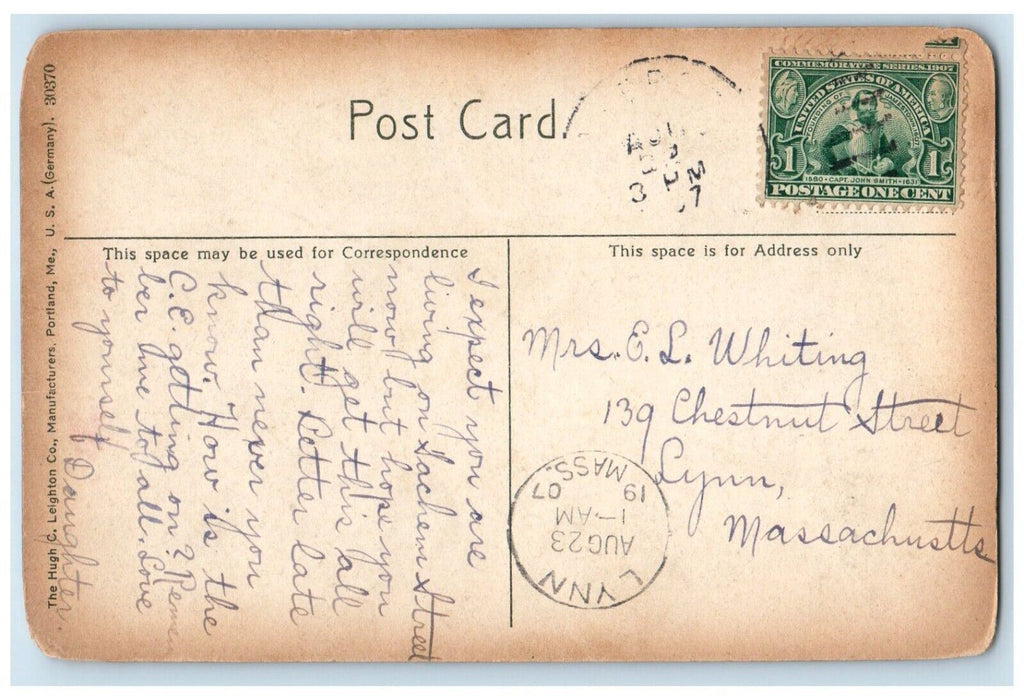 Post Card.
COMMEMORATIVE SERIES 1907
UNITED STATES OF AMERICA
FOUNDING OF JAMESTOWN
1 1
1580 - CAPT. JOHN SMITH - 1631
POSTAGE ONE CENT
AUG
3
7
This space may be used for Correspondence
This space is for Address only
I expect you are
living on Sachem Street
now but hope you
will get this all
right. Better late
than never you
know. How is the
C.E. getting on? Remem
ber me to all. Love
to yourself
Daughter.
Mrs. E. L. Whiting
139 Chestnut Street
Lynn,
Massachustts
LYNN
AUG 23
1-AM
19 07
MASS.
The Hugh C. Leighton Co., Manufacturers, Portland, Me., U. S. A. (Germany). 30370